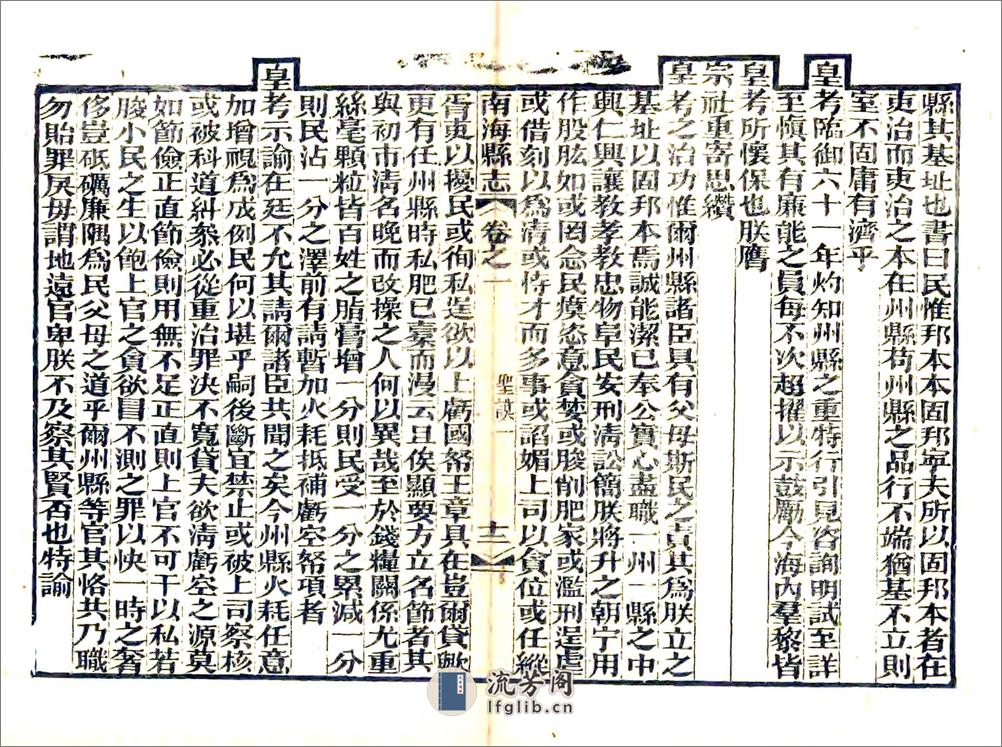 縣其基址也書曰民惟邦本本固邦寧夫所以固邦本者在
吏治而吏治之本在州縣苟州縣之品行不端猶基不立則
室不固庸有濟乎
皇考臨御六十一年灼知州縣之重特行引見咨詢明試至詳
至慎其有廉能之員每不次超擢以示鼓勵今海內羣黎皆
皇考所懷保也朕膺
宗社重寄思纘
皇考之治功惟爾州縣諸臣具有父母斯民之責其為朕立之
基址以固邦本焉誠能潔己奉公實心盡職一州一縣之中
興仁興讓教孝教忠物阜民安刑清訟簡朕將升之朝宁用
作股肱如或罔念民瘼恣意貪婪或朘削肥家或濫刑逞虐
或借刻以為清或恃才而多事或諂媚上司以貪位或任縱
南海縣志
卷之一
聖謨一
十二
胥吏以擾民或徇私逞欲以上虧國帑王章具在豈爾貸歟
更有任州縣時私肥已橐而漫云且俟顯要方立名節者其
與初市清名晚而改操之人何以異哉至於錢糧關係尤重
絲毫顆粒皆百姓之脂膏增一分則民受一分之累減一分
則民沾一分之澤前有請暫加火耗抵補虧空帑項者
皇考示諭在廷不允其請爾諸臣共聞之矣今州縣火耗任意
加增視為成例民何以堪乎嗣後斷宜禁止或被上司察核
或被科道糾叅必從重治罪決不寬貸夫欲清虧空之源莫
如節儉正直節儉則用無不足正直則上官不可干以私若
朘小民之生以飽上官之貪欲冒不測之罪以快一時之奢
侈豈砥礪廉隅為民父母之道乎爾州縣等官其恪共乃職
勿貽罪戾毋謂地遠官卑朕不及察其賢否也特諭
流芳阁
lfglib.cn